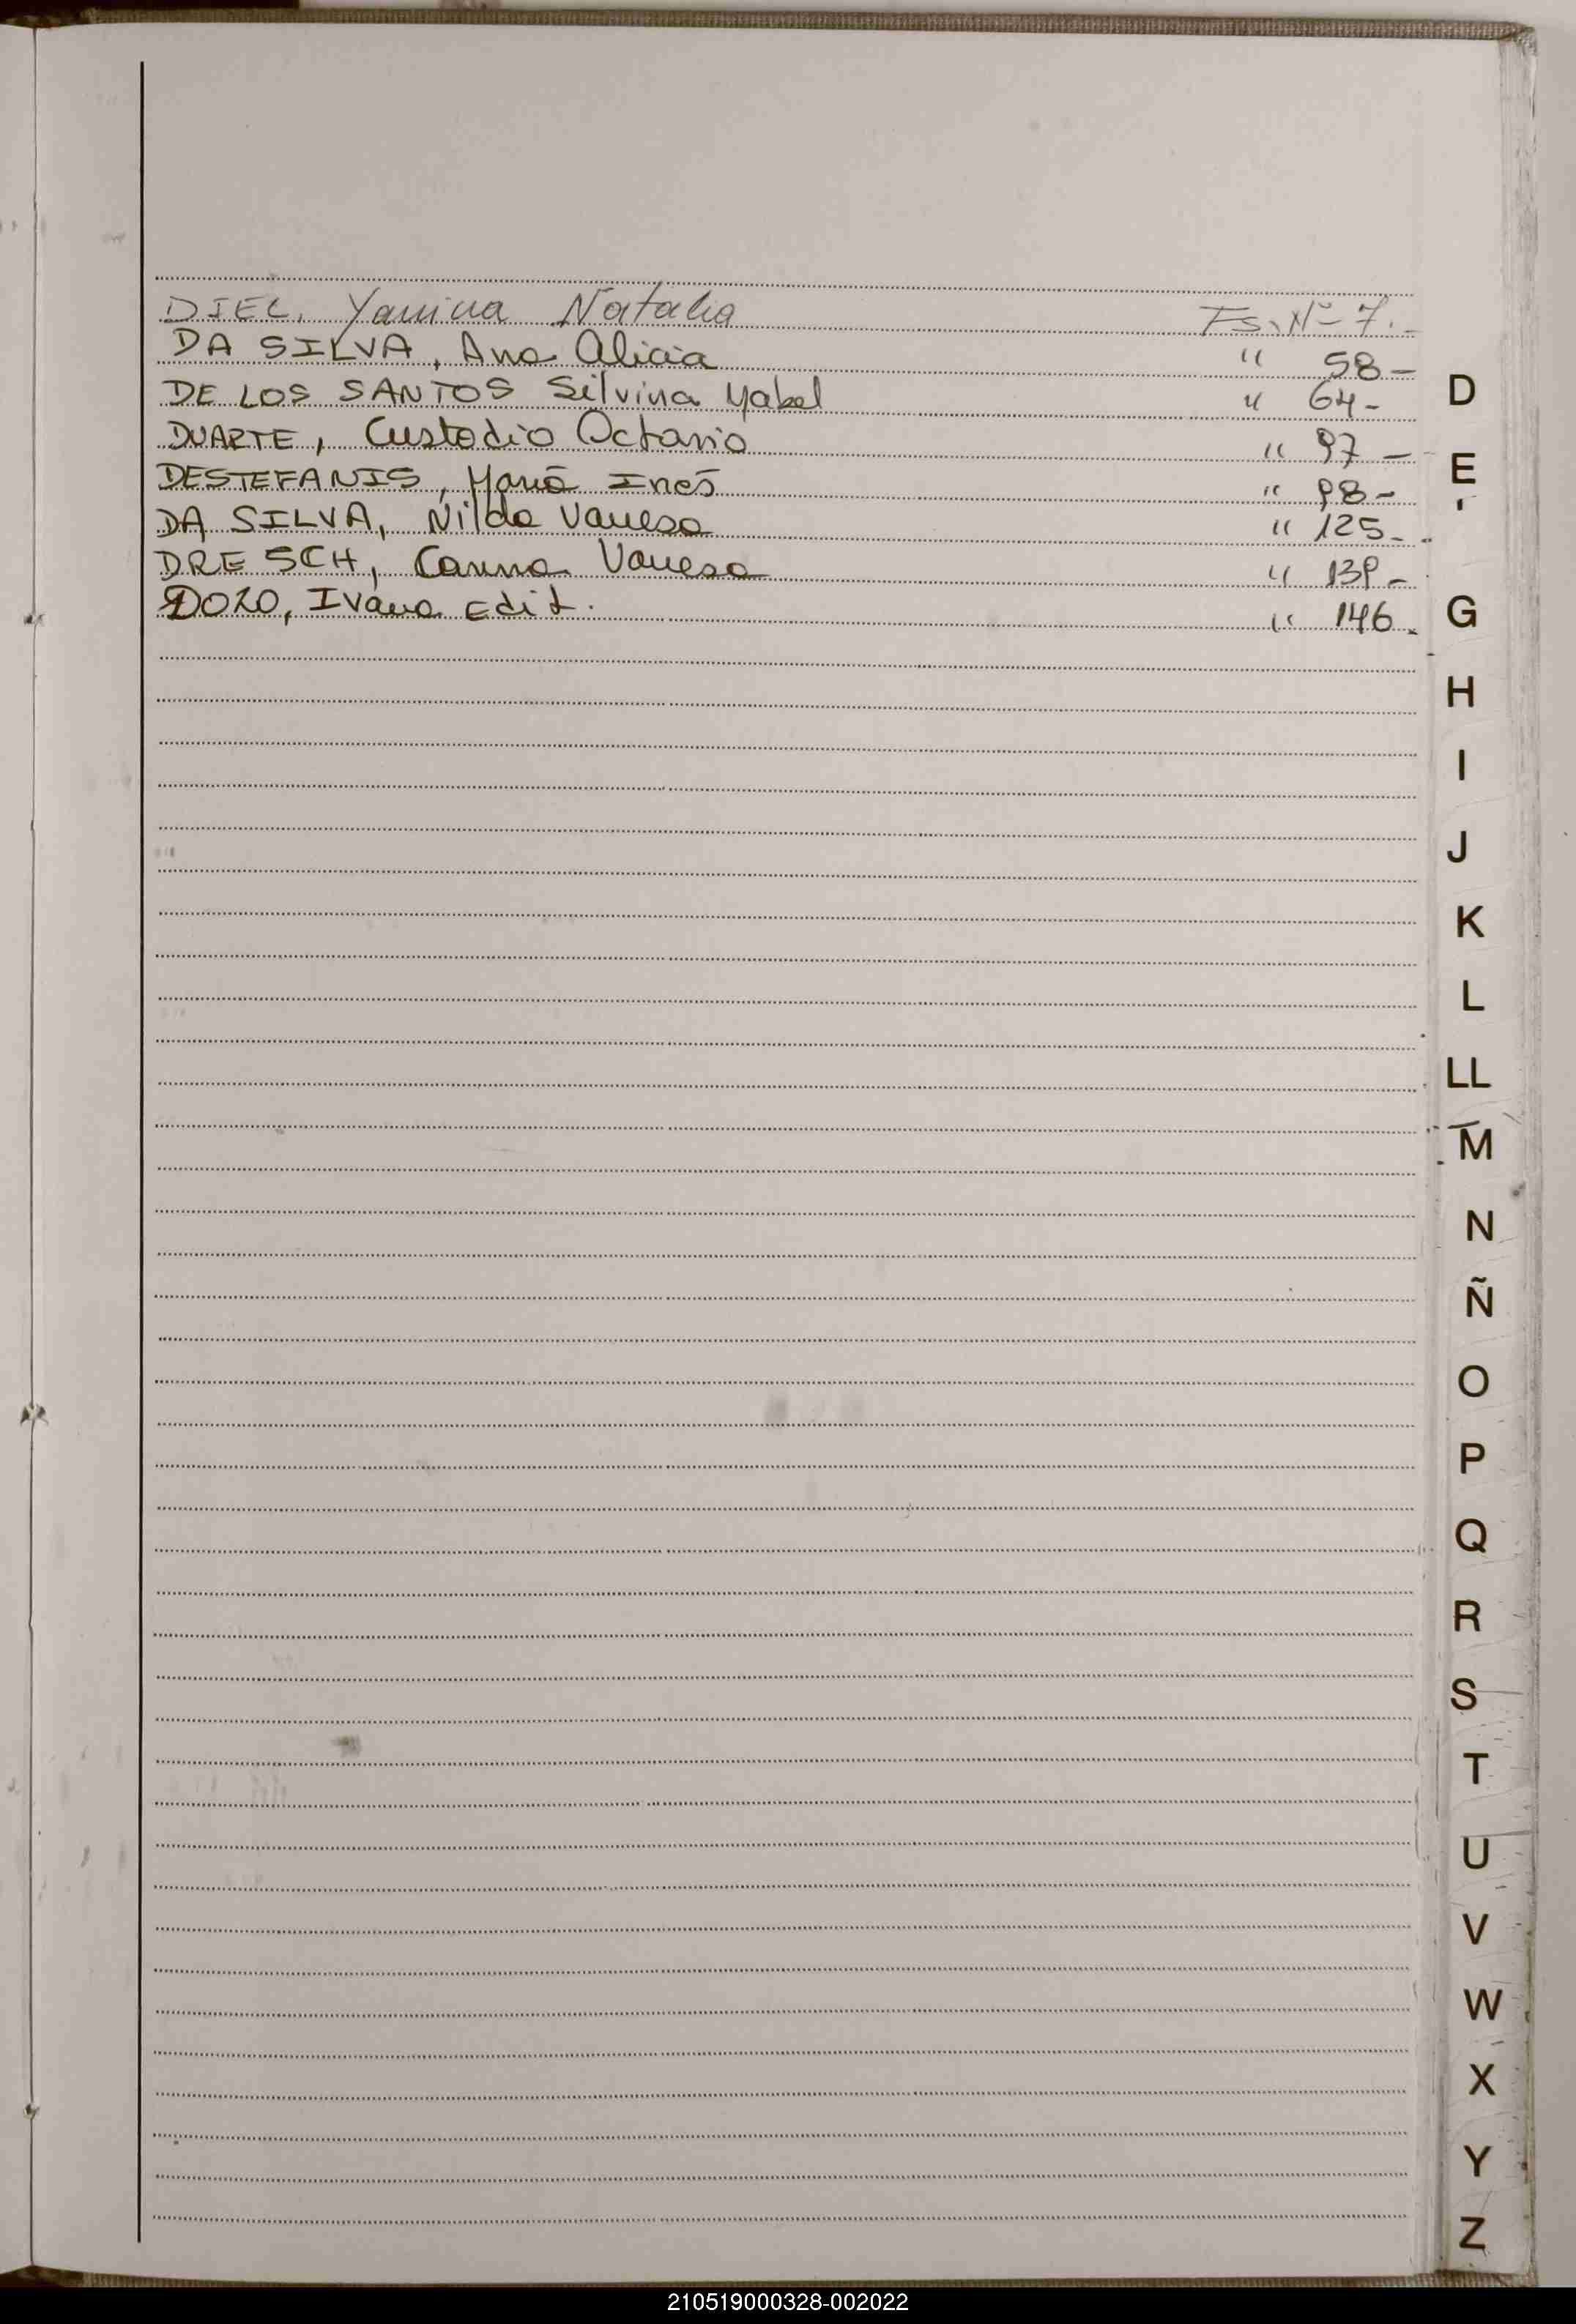 DIEL, Yanina Natalia Fs. Nº 7.-
DA SILVA, Ana Alicia " 58-
DE LOS SANTOS Silvina Mabel " 64-
DUARTE, Custodio Octavio " 97-
DESTEFANIS, María Inés " 98-
DA SILVA, Nilda Vanesa " 125-
DRESCH, Carina Vanesa " 139-
DOZO, Ivana Edit. " 146-
D
E
G
H
I
J
K
L
LL
M
N
Ñ
O
P
Q
R
S
T
U
V
W
X
Y
Z
210519000328-002022